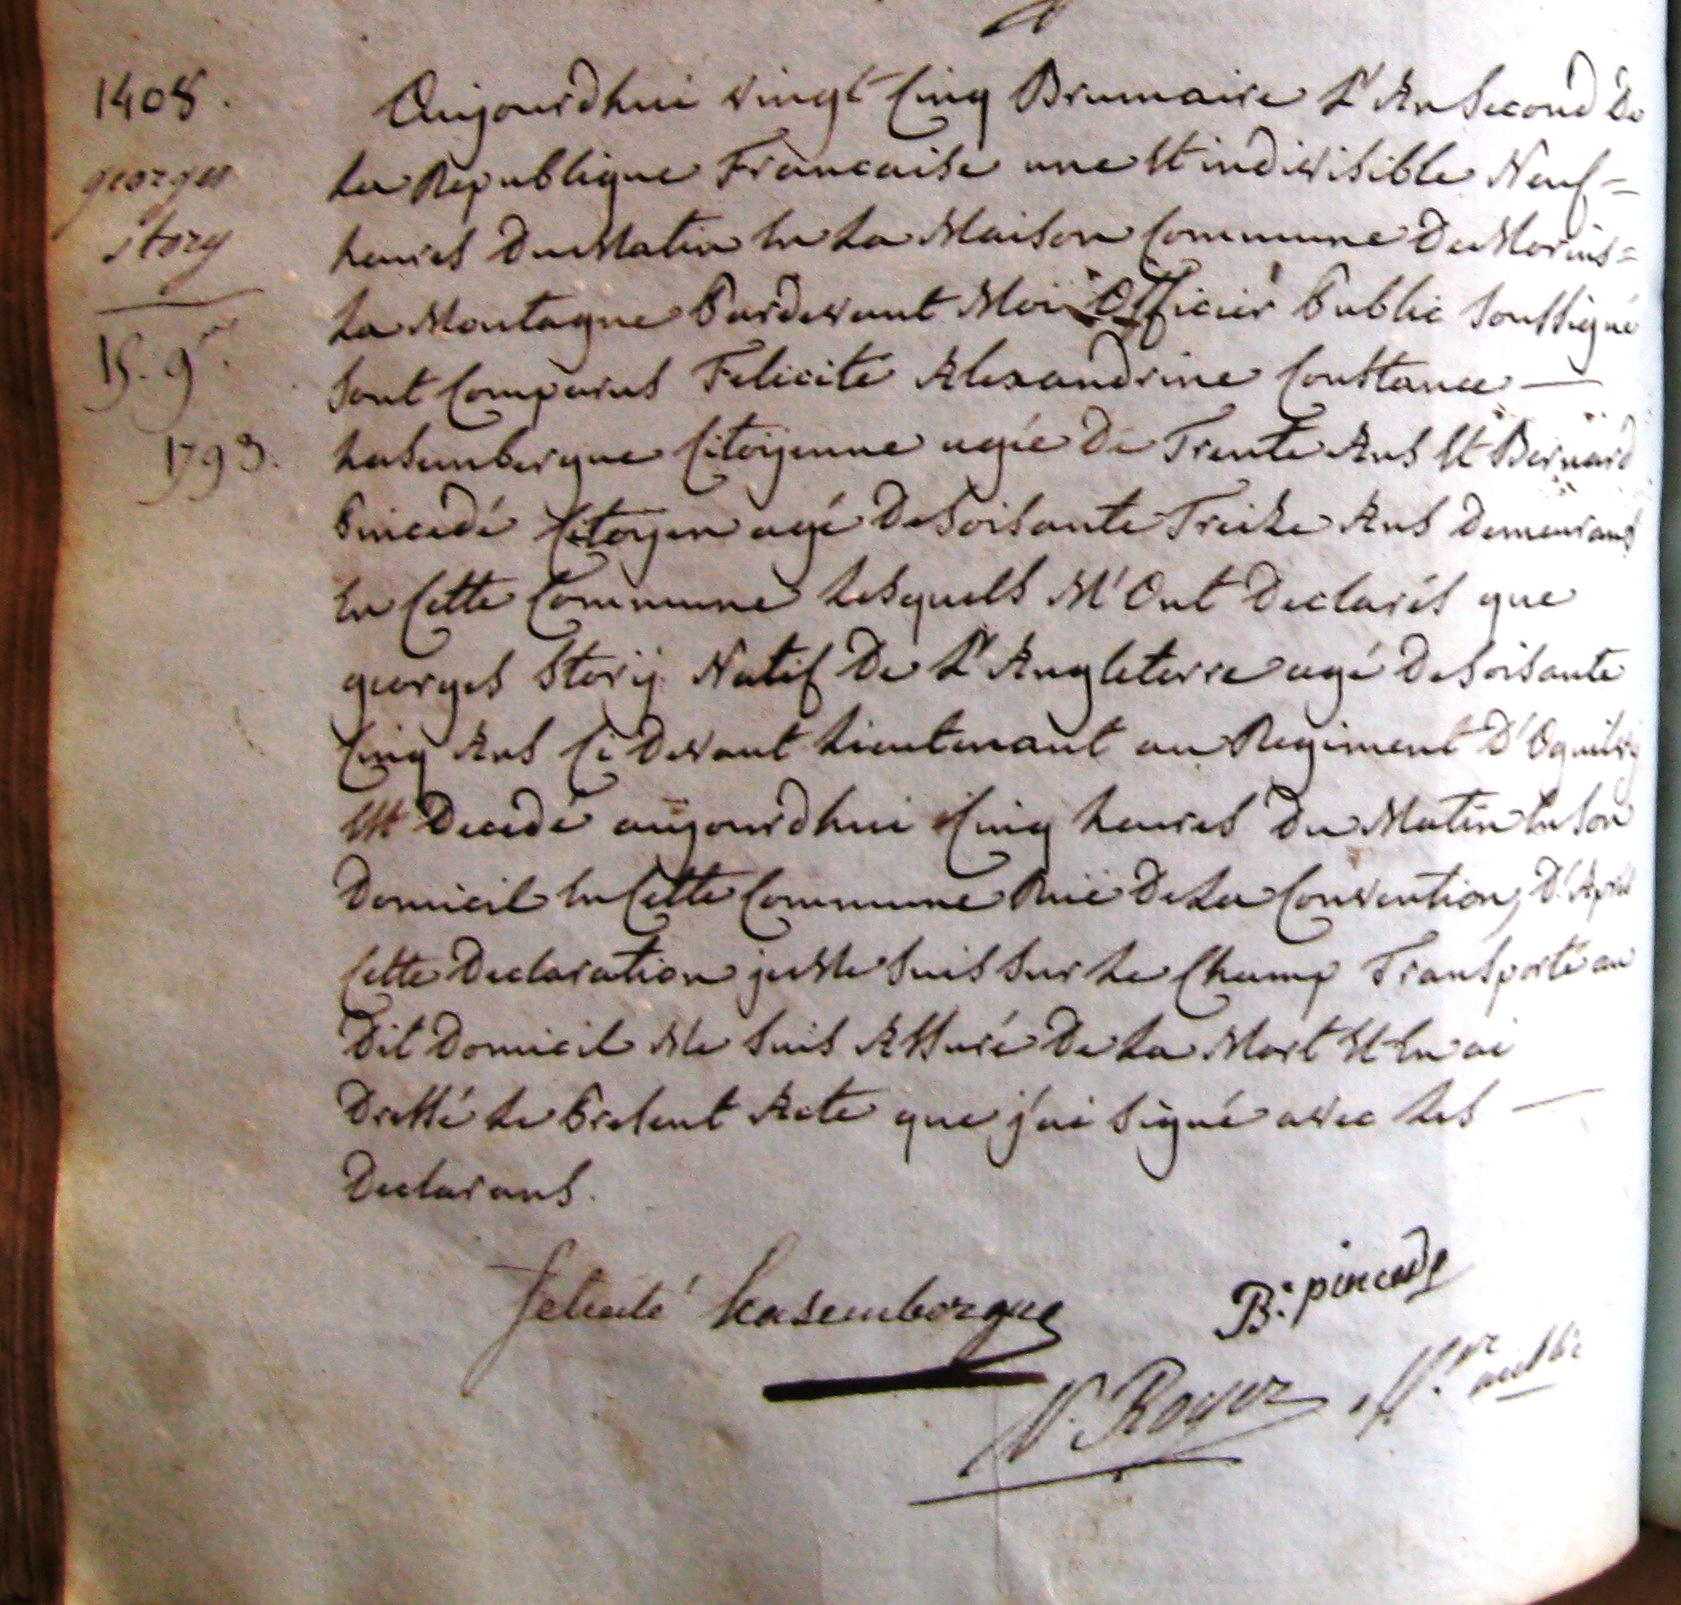 1408.
georges
story
15. 9.re
1793.
Aujourdhui vingt Cinq Brumaire L'An Second De
La Republique Francaise une Et indivisible Neuf=
heures Du Matin En La Maison Commune De Morins=
La Montagne Pardevant Moi Officier Public Soussigné
Sont Comparus Felicité Alexandrine Constance —
Lasembergue Citoyenne agée De Trente Ans Et Bernard
Pincedé Citoyen agé De Soisante Treize Ans Demeurant
En Cette Commune Lesquels M'Ont Declarés que
georges Storÿ Natif De L'Angleterre agé De Soisante
Cinq Ans Ci Devant Lieutenant au Regiment D'Oguilvÿ
Est Decedé aujourdhui Cinq heures Du Matin En Son
Domicil En Cette Commune Ruë De La Convention, D'Après
Cette Declaration je Me Suis Sur Le Champ Transporté au
Dit Domicil Me Suis Assuré De La Mort Et En ai
Dressé Le Present Acte que j'ai Signé avec Les —
Declarans.
felicité Lasemborgue
B: pincede
N. Royer off.er public